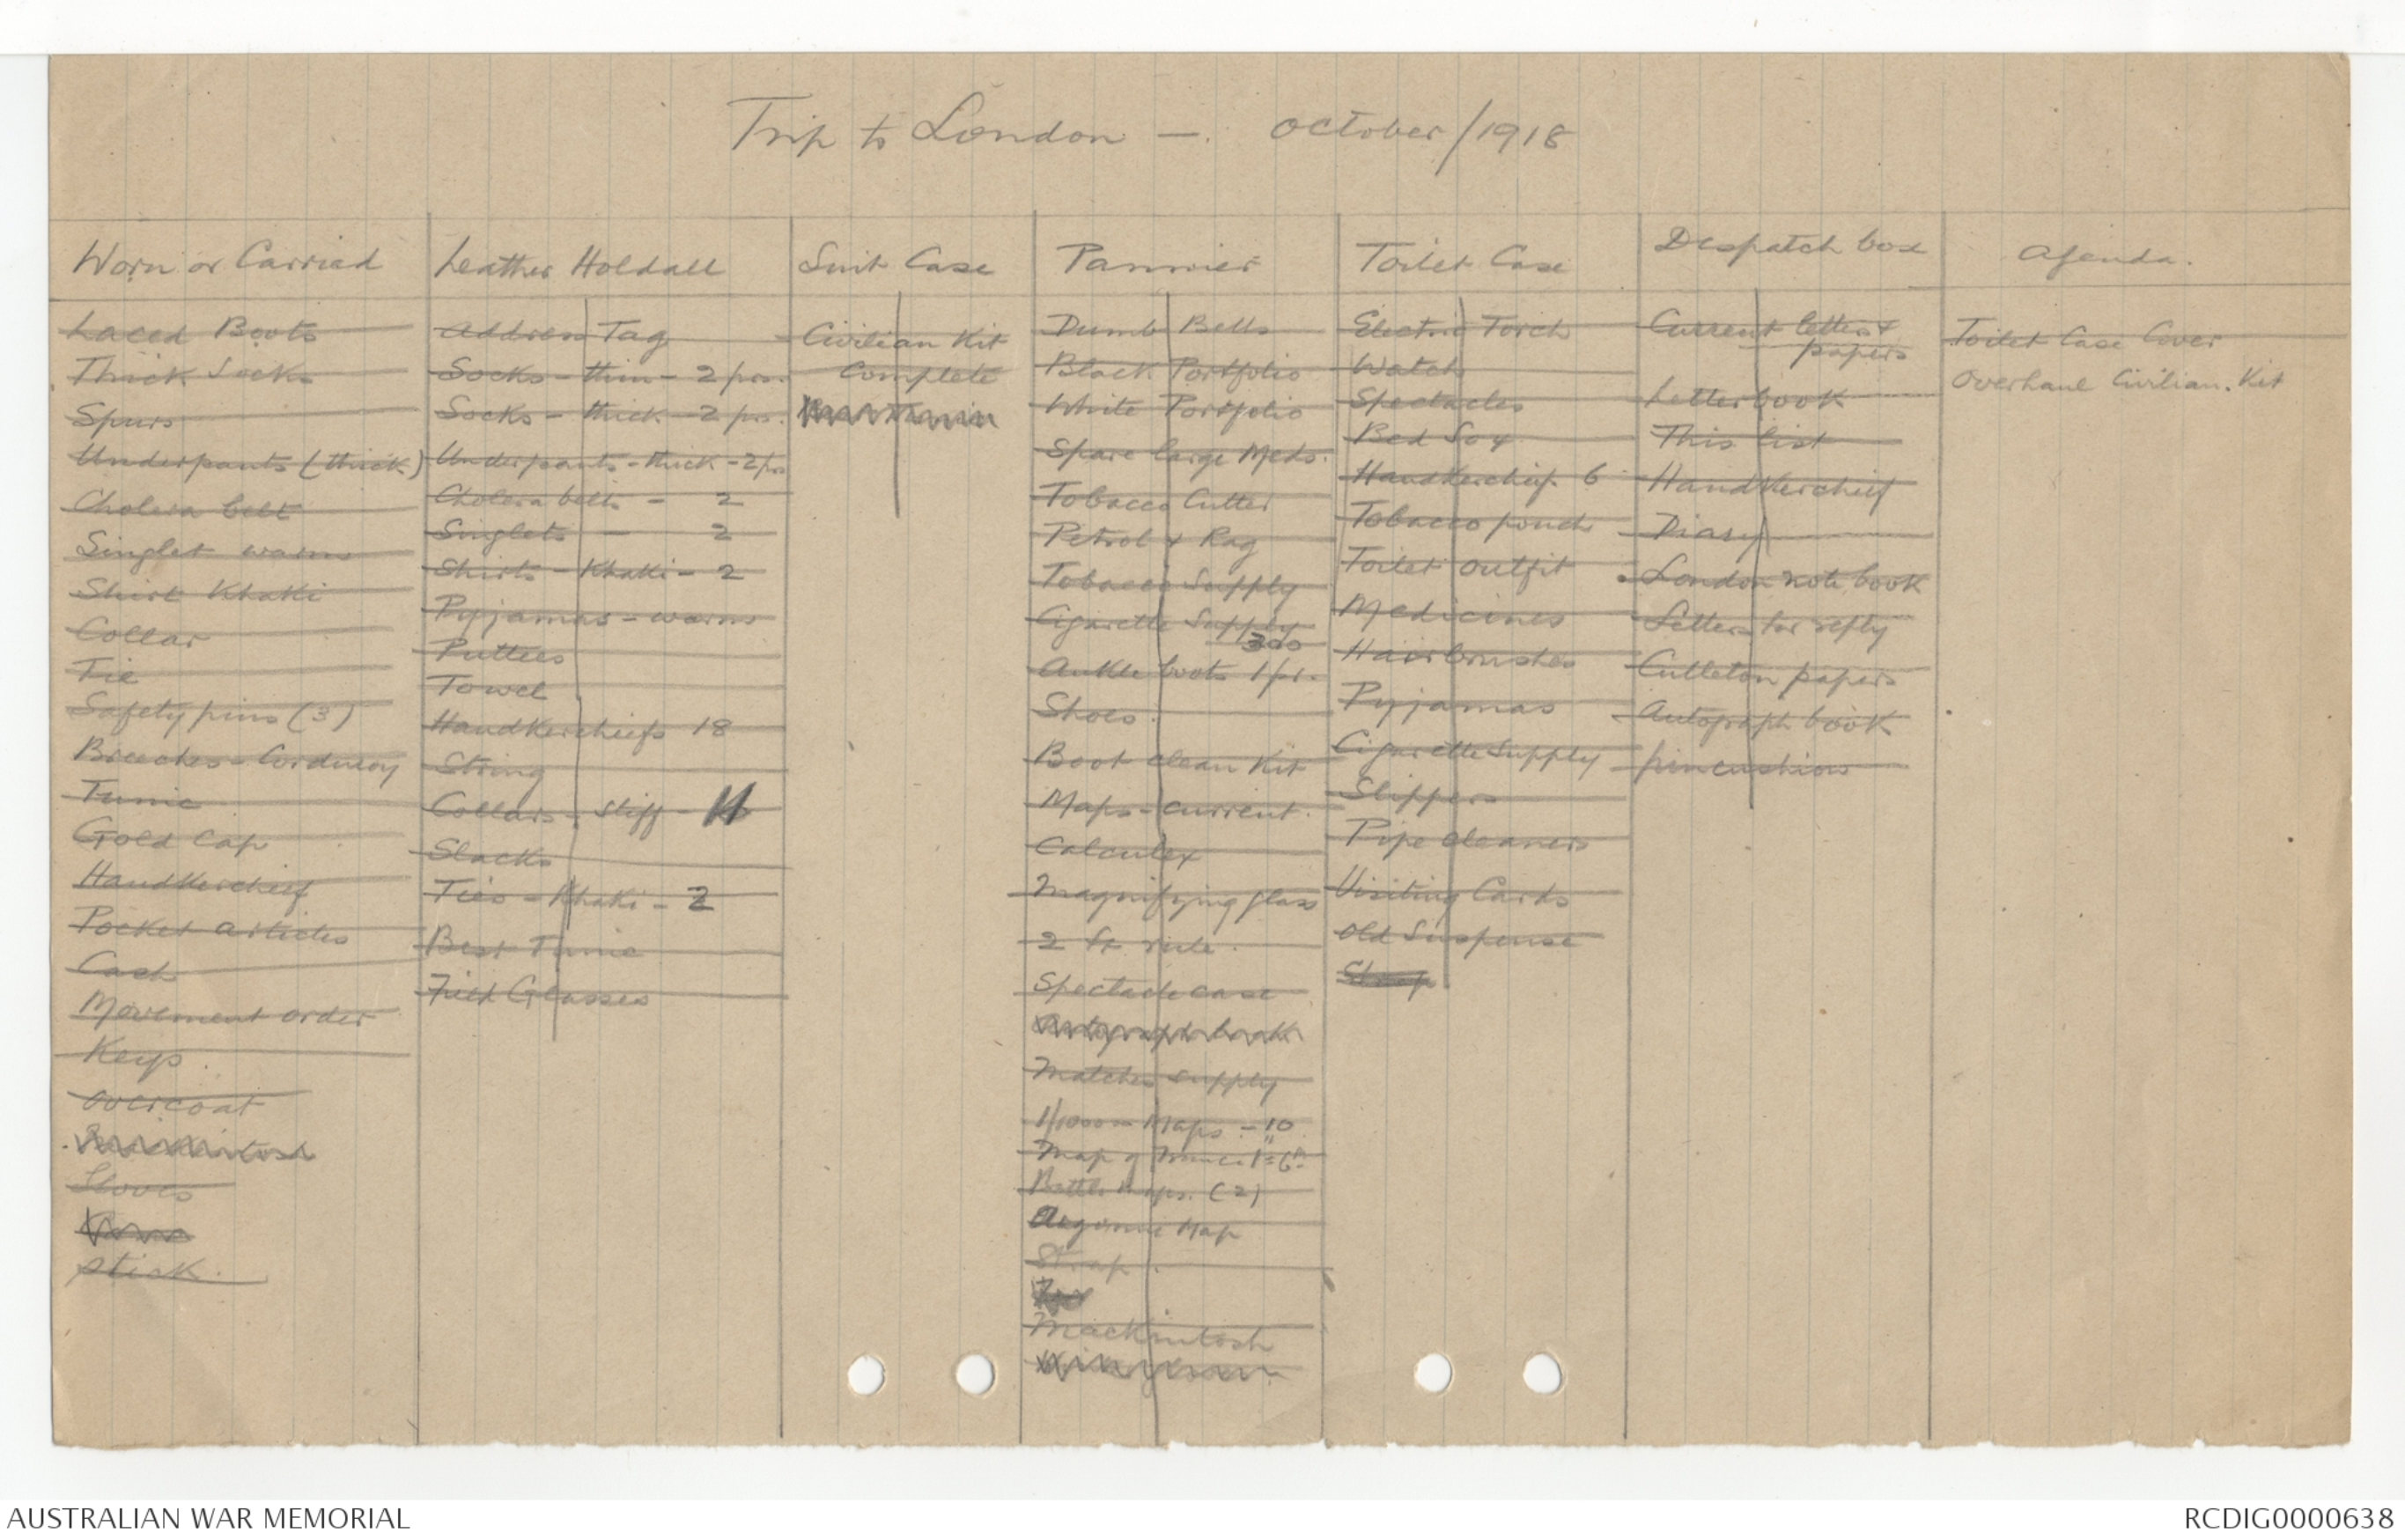 Trip to London — October/1918
Worn or Carried
Laced Boots
Thick Socks
Spurs
Underpants (thick)
Cholera belt
Singlet warm
Shirt Khaki
Collar
Tie
Safety pins (3)
Breeches - Corduroy
Tunic
Gold Cap
Handkerchief
Pocket articles
Cash
Movement order
Keys.
Overcoat
Mackintosh
Gloves
stick.
Leather Holdall
Address Tag
Socks - thin - 2 prs.
Socks - thick - 2 prs.
Underpants - thick - 2 prs
Cholera belts - 2
Singlets - 2
Shirts - Khaki - 2
Pyjamas - warm
Puttees
Towel
Handkerchiefs 18
String
Collars - Stiff -
Slacks
Ties - Khaki - 2
Best Tunic
Field Glasses
Suit Case
Civilian Kit
Complete
Pannier
Dumb Bells
Black Portfolio
White Portfolio
Spare large Meds.
Tobacco Cutter
Petrol & Rag
Tobacco Supply
Cigarette Supply
300
Ankle boots 1 pr.
Shoes.
Boot clean Kit
Maps - current.
Calculex
Magnifying glass
2 ft rule.
Spectacle case
Autograph book
Matches supply
Maps - 10
Map of France
Battle maps. (2)
Argonne Map
Strap.
Mackintosh
Toilet Case
Electric Torch
Watch
Spectacles
Bed Sox
Handkerchief. 6
Tobacco pouch
Toilet outfit
Medicines
Hairbrushes
Pyjamas
Cigarette Supply
Slippers
Pipe cleaners
Visiting Cards
Old Suspense
Strap
Despatch box
Current letters &
papers
Letterbook
This list
Handkerchief
Diary
London note book
Letters for reply
Culleton papers
Autograph book
pincushion
Agenda.
Toilet Case Cover
Overhaul Civilian. Kit
AUSTRALIAN WAR MEMORIAL
RCDIG0000638